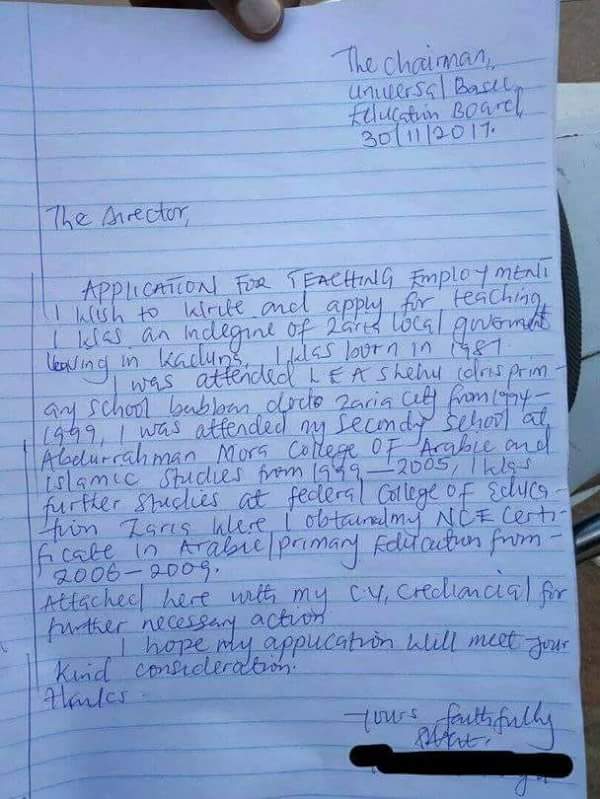 The Chairman,
Universal Basic
Education Board,
30/11/2017.
The Director,
APPLICATION FOR TEACHING Employment
I wish to write and apply for teaching,
I was an indegine of Zaria local government
leaving in Kaduna. I was born in 1987.
I was attended L E A Shehu Idris prim-
ary school babban dodo Zaria City from 1994-
1999, I was attended my Secondy School at
Abdurrahman Mora College OF Arabic and
Islamic Studies from 1999-2005, I was
further studies at federal College OF Educa-
tion Zaria were I obtained my NCE Certi-
ficate in Arabic/primary Education from-
2006-2009.
Attached here with my C.V, Crediancial for
further necessary action
I hope my application will meet your
kind consideration.
Thanks.
Yours faithfully